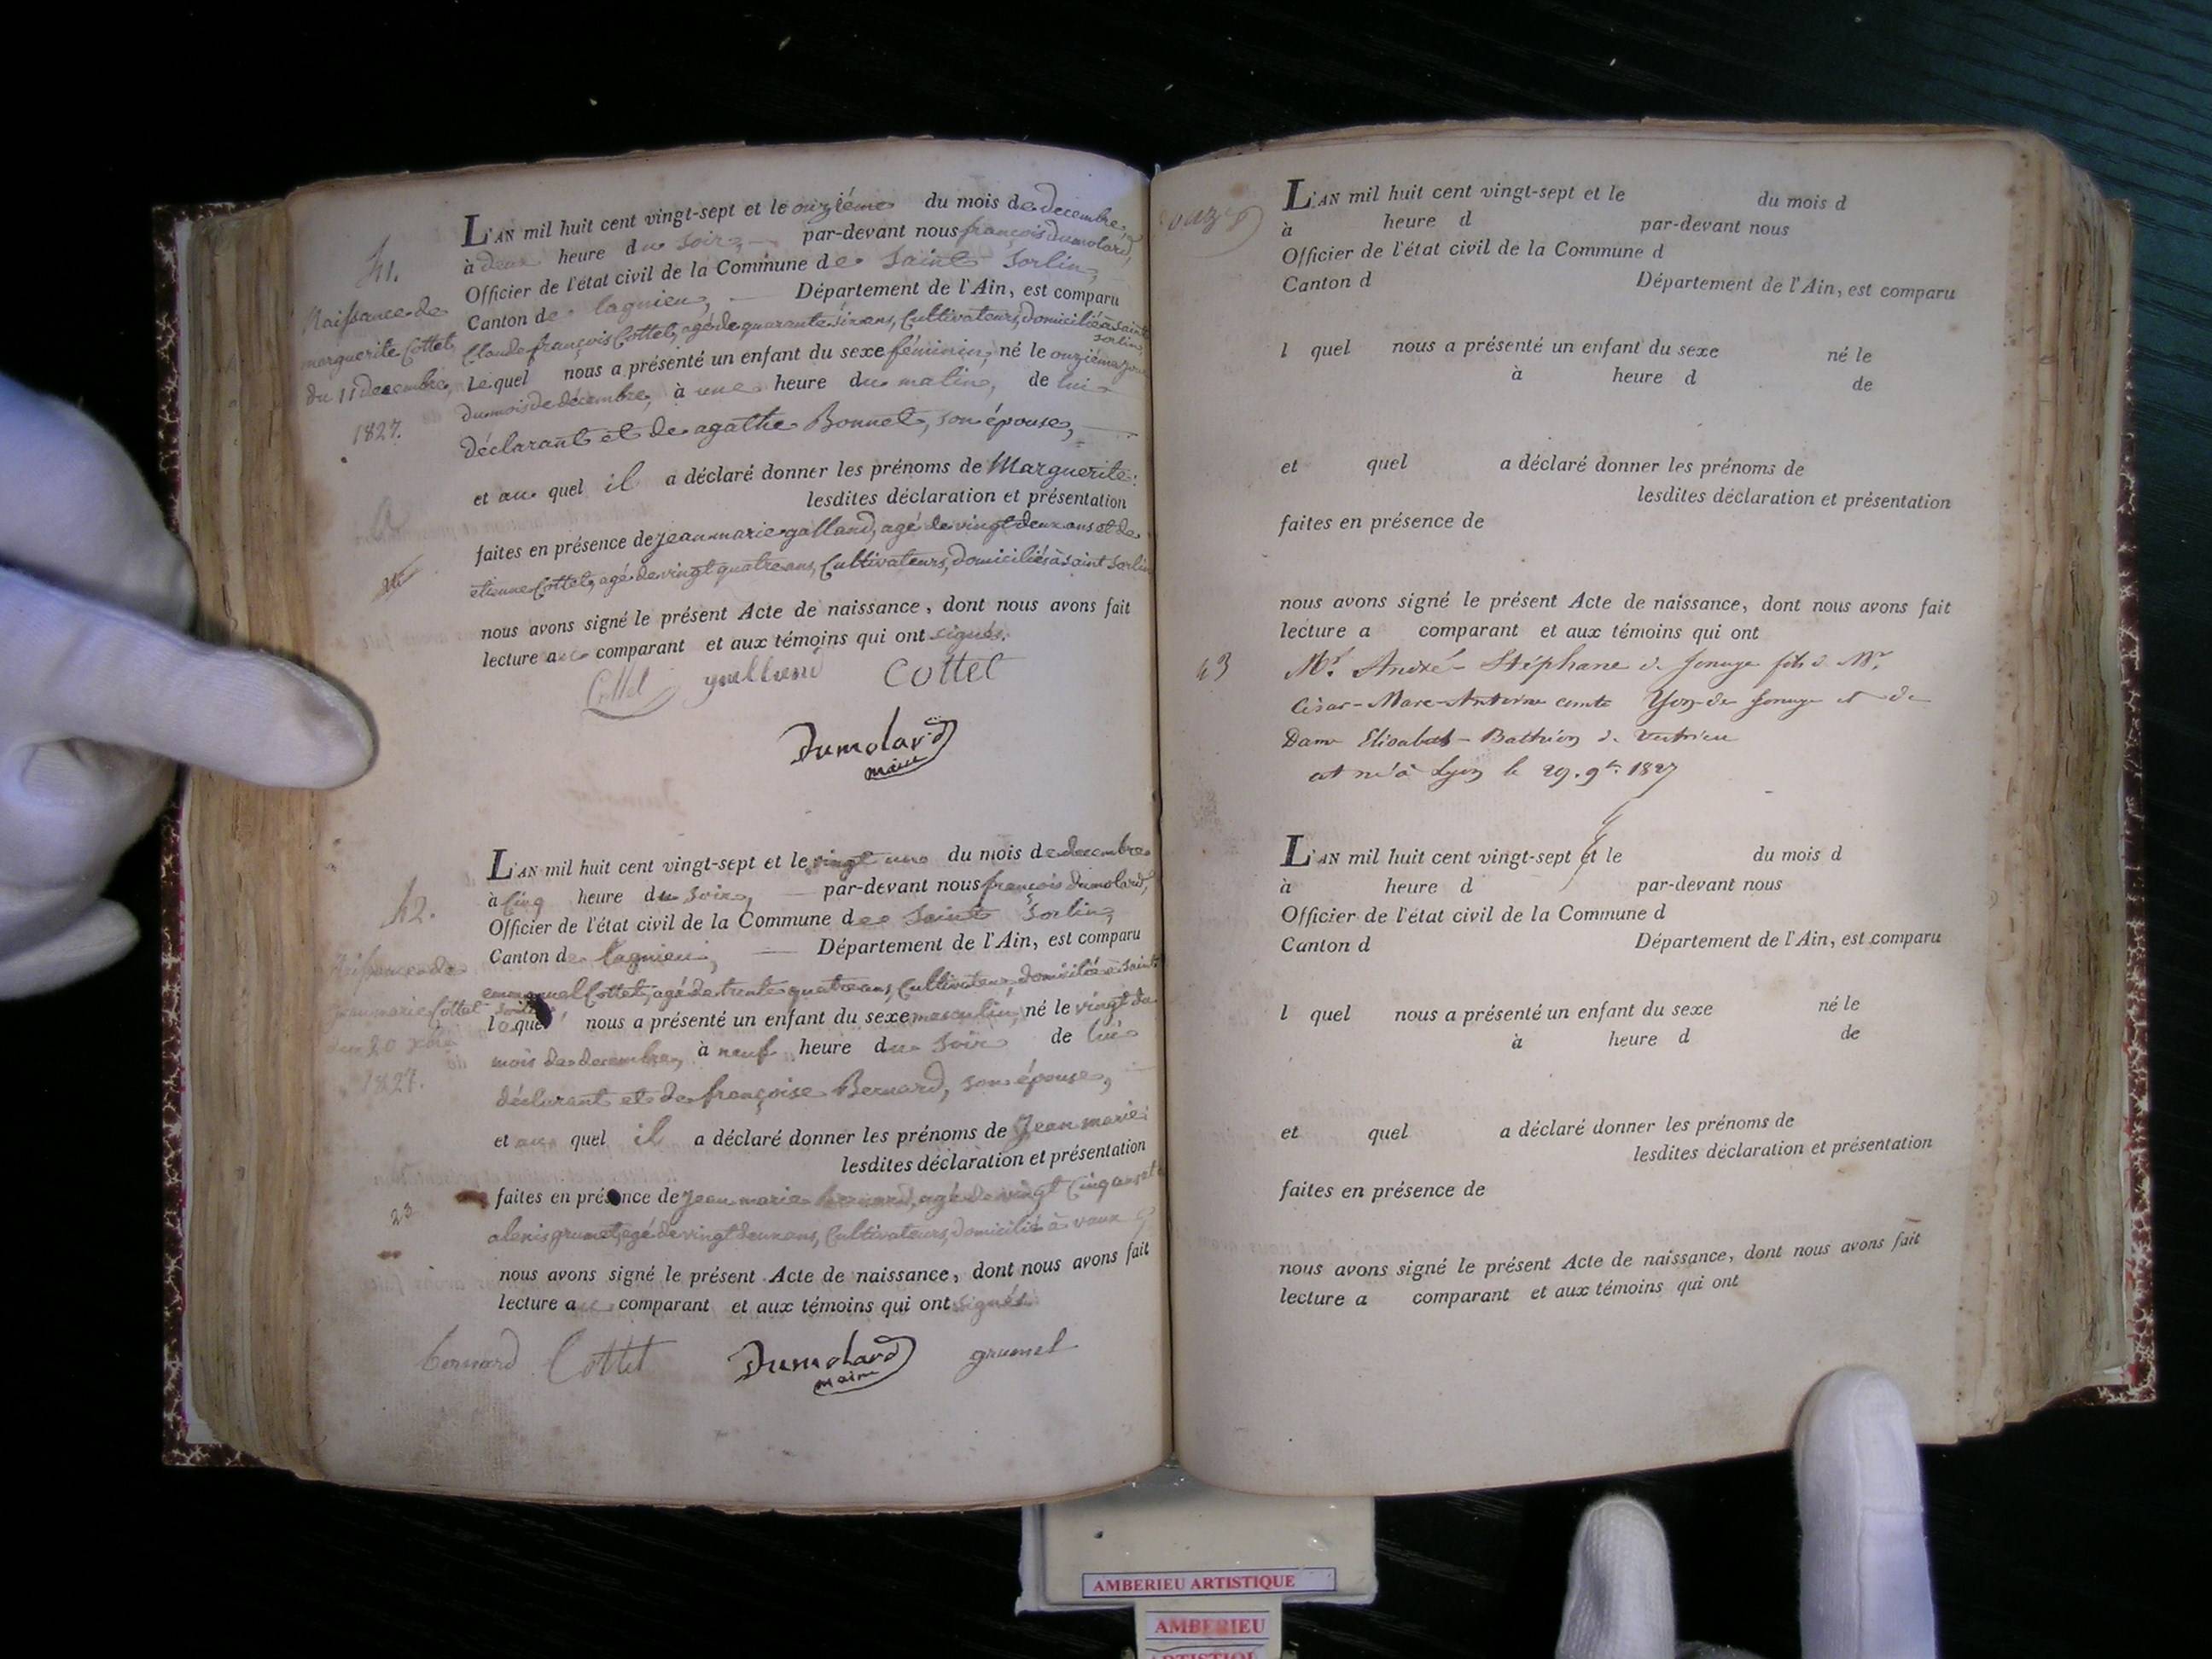 41.
Naissance de
marguerite Cottet,
du 11 decembre,
1827.
L'AN mil huit cent vingt-sept et le onzième du mois de decembre,
à deux heure du soir, par-devant nous françois dumolard,
Officier de l'état civil de la Commune de Saint Sorlin,
Canton de lagnieu, Département de l'Ain, est comparu
Claude françois Cottet, agé de quarante six ans, Cultivateur, domicilié à saint
sorlin,
Lequel nous a présenté un enfant du sexe féminin, né le onzième jour
du mois de décembre, à une heure du matin, de lui
déclarant et de agathe Bonnet, son épouse,
et au quel il a déclaré donner les prénoms de Marguerite:
lesdites déclaration et présentation
faites en présence de jean marie galland, agé de vingt deux ans et de
etienne Cottet, agé de vingt quatre ans, Cultivateurs, domiciliés à saint Sorlin
nous avons signé le présent Acte de naissance, dont nous avons fait
lecture au comparant et aux témoins qui ont signés.
Cottet galland Cottet
Dumolard
maire
42.
Naissance de
jean marie Cottet
du 20 xbre
1827.
L'AN mil huit cent vingt-sept et le vingt un du mois de decembre
à Cinq heure du soir, par-devant nous françois dumolard,
Officier de l'état civil de la Commune de Saint Sorlin,
Canton de lagnieu, Département de l'Ain, est comparu
emmanuel Cottet, agé de trente quatre ans, Cultivateur domicilié à saint
Sorlin
lequel nous a présenté un enfant du sexe masculin, né le vingt du
mois de decembre, à neuf heure du soir de lui
déclarant et de françoise Bernard, son épouse,
et au quel il a déclaré donner les prénoms de Jean marie:
lesdites déclaration et présentation
faites en présence de Jean marie bernard, agé de vingt Cinq ans et
23
alexis grumet, agé de vingt deux ans, Cultivateurs, domicilié à vaux
nous avons signé le présent Acte de naissance, dont nous avons fait
lecture au comparant et aux témoins qui ont signés.
bernard Cottet Dumolard grumet
maire
onze
L'AN mil huit cent vingt-sept et le du mois d
à heure d par-devant nous
Officier de l'état civil de la Commune d
Canton d Département de l'Ain, est comparu
l quel nous a présenté un enfant du sexe né le
à heure d de
et quel a déclaré donner les prénoms de
lesdites déclaration et présentation
faites en présence de
nous avons signé le présent Acte de naissance, dont nous avons fait
lecture a comparant et aux témoins qui ont
43 Mr. André-Stéphane de Jonage fils de Mr.
César-Marc-Antoine comte Yon de Jonage et de
Dame Elisabet-Bathéon de Vertrieu
est né à Lyon le 29. 9bre 1827
L'AN mil huit cent vingt-sept et le du mois d
à heure d par-devant nous
Officier de l'état civil de la Commune d
Canton d Département de l'Ain, est comparu
l quel nous a présenté un enfant du sexe né le
à heure d de
et quel a déclaré donner les prénoms de
lesdites déclaration et présentation
faites en présence de
nous avons signé le présent Acte de naissance, dont nous avons fait
lecture a comparant et aux témoins qui ont
AMBERIEU ARTISTIQUE
AMBERIEU
ARTISTIQUE